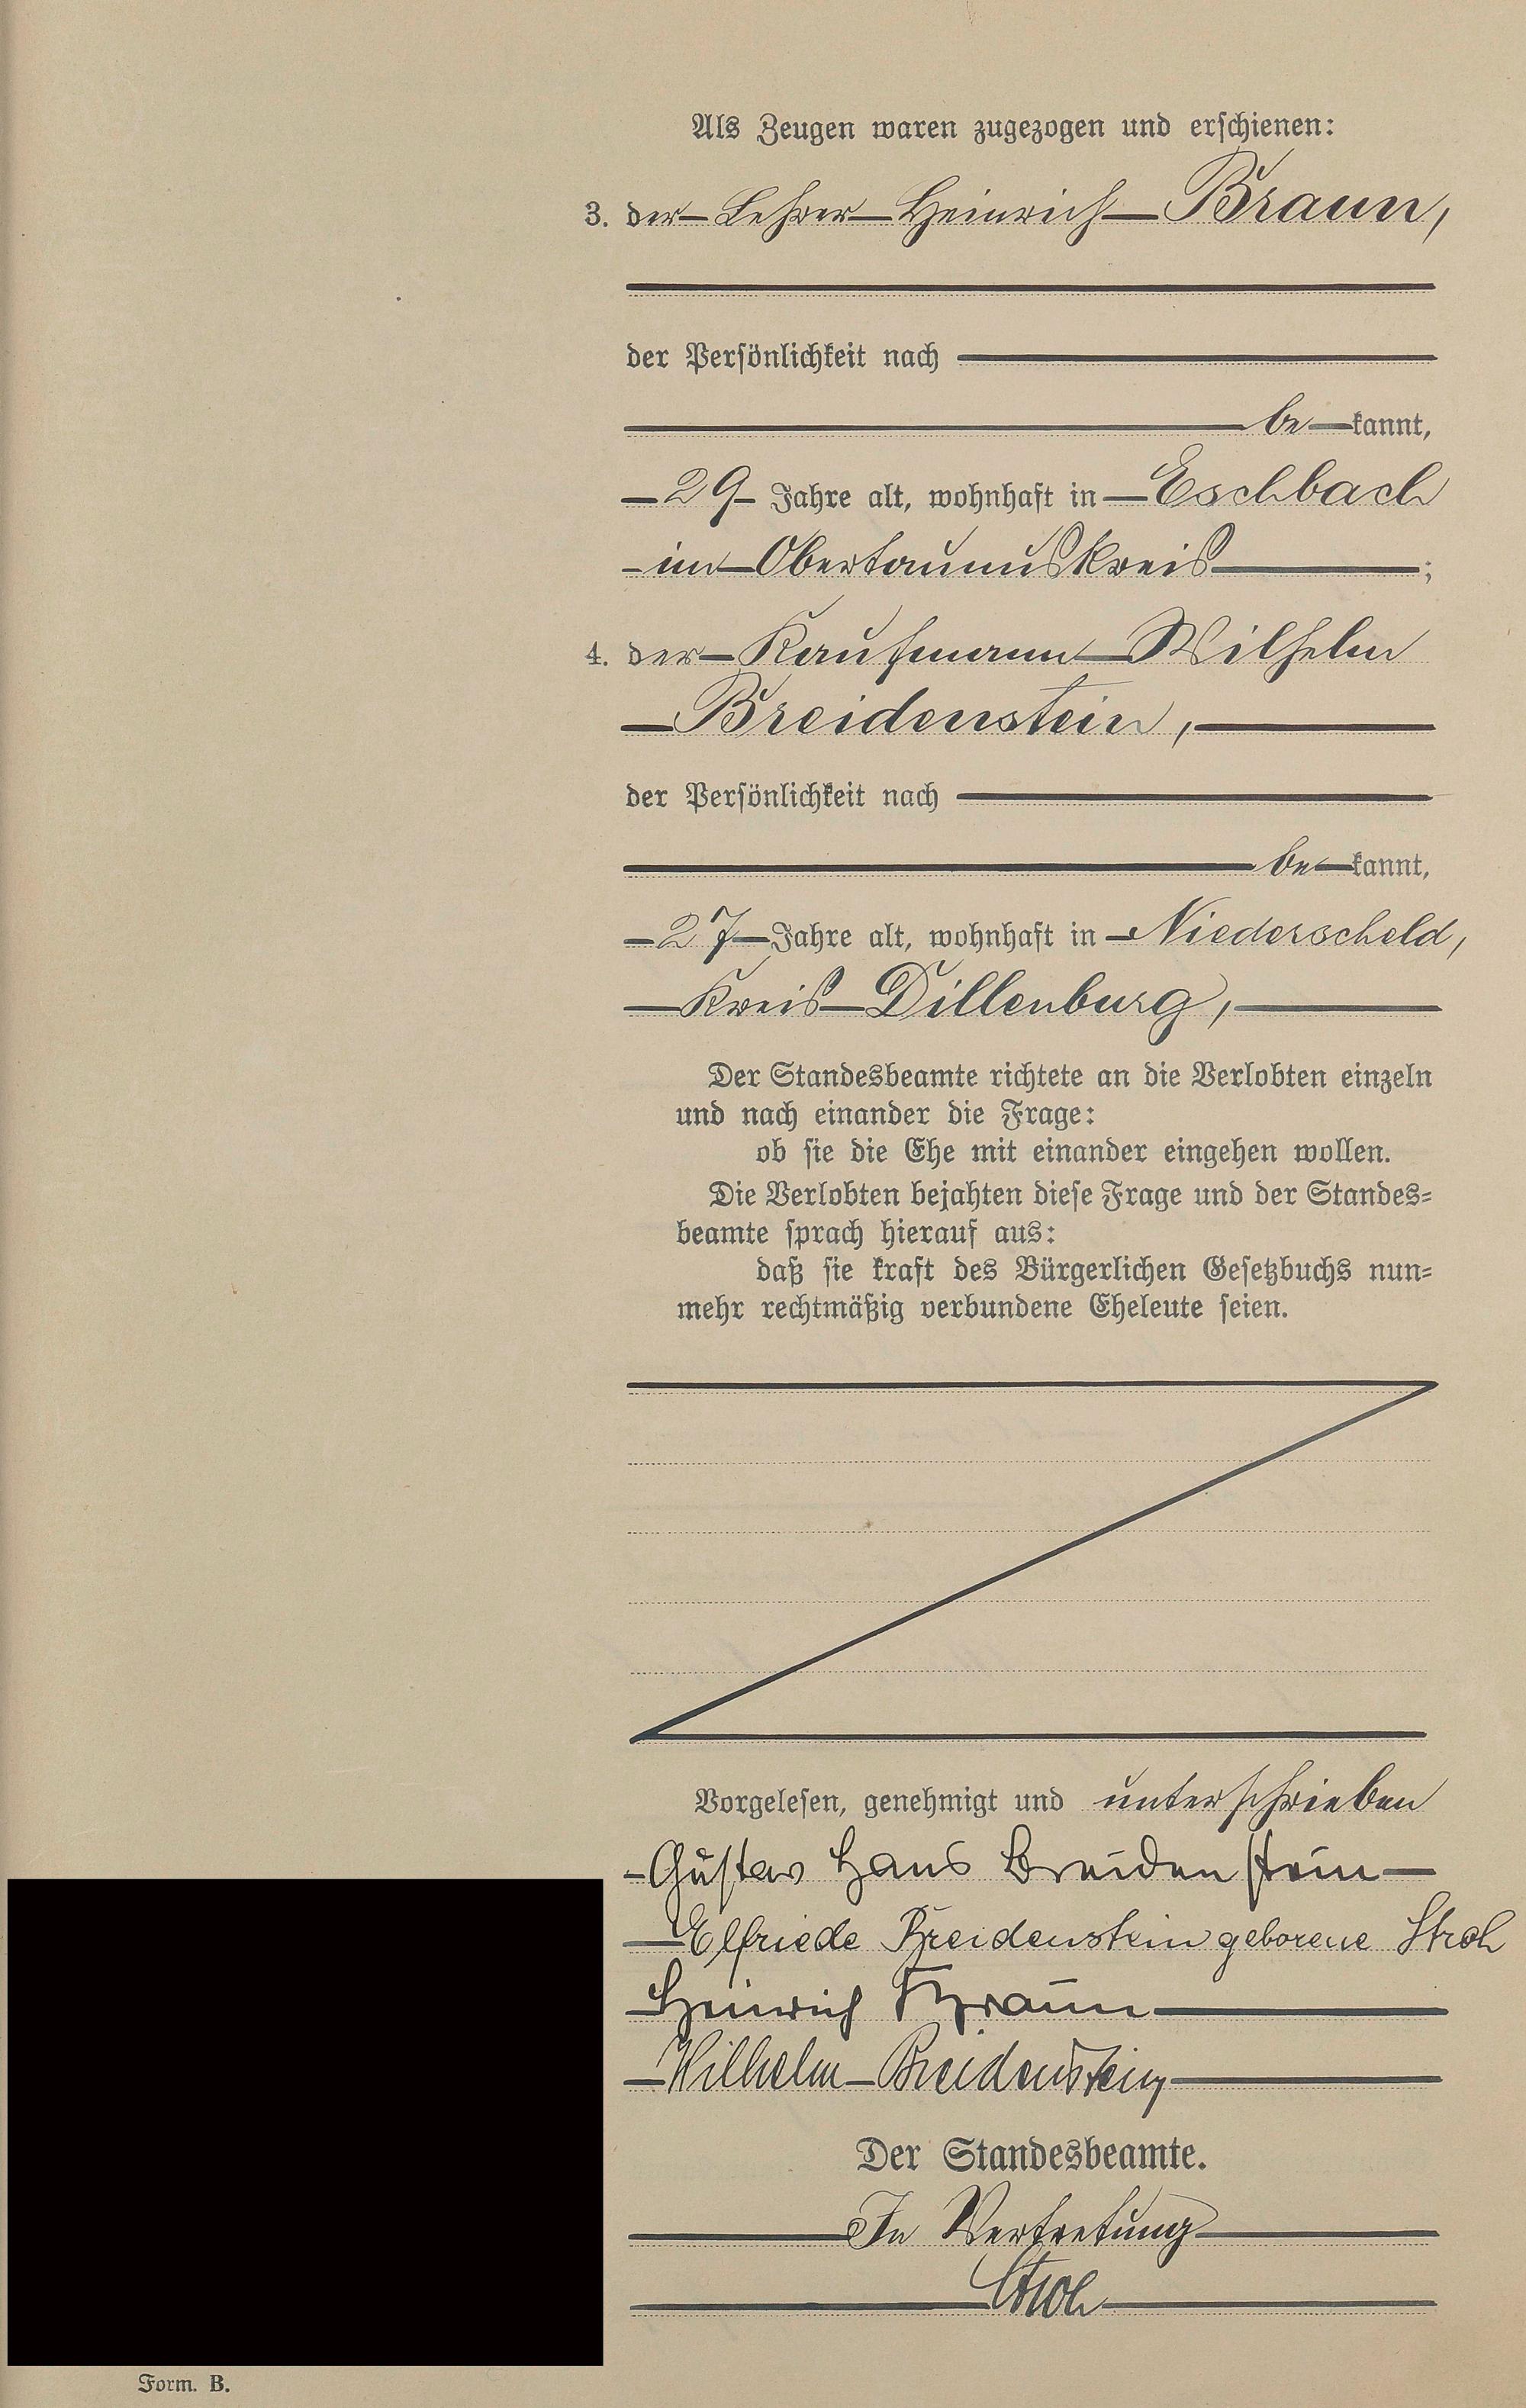 Als Zeugen waren zugezogen und erschienen:
3. der Lehrer Heinrich Braun,
der Persönlichkeit nach
be kannt,
29 Jahre alt, wohnhaft in Eschbach
im Obertaunuskreis ;
4. der Kaufmann Wilhelm
Breidenstein,
der Persönlichkeit nach
be kannt,
27 Jahre alt, wohnhaft in Niederscheld,
Kreis Dillenburg,
Der Standesbeamte richtete an die Verlobten einzeln
und nach einander die Frage:
ob sie die Ehe mit einander eingehen wollen.
Die Verlobten bejahten diese Frage und der Standes-
beamte sprach hierauf aus:
daß sie kraft des Bürgerlichen Gesetzbuchs nun-
mehr rechtmäßig verbundene Eheleute seien.
Vorgelesen, genehmigt und unterschrieben
Gustav Hans Breidenstein
Elfriede Breidenstein geborene Stroh
Heinrich Braun
Wilhelm Breidenstein
Der Standesbeamte.
In Vertretung
Stroh
Form. B.